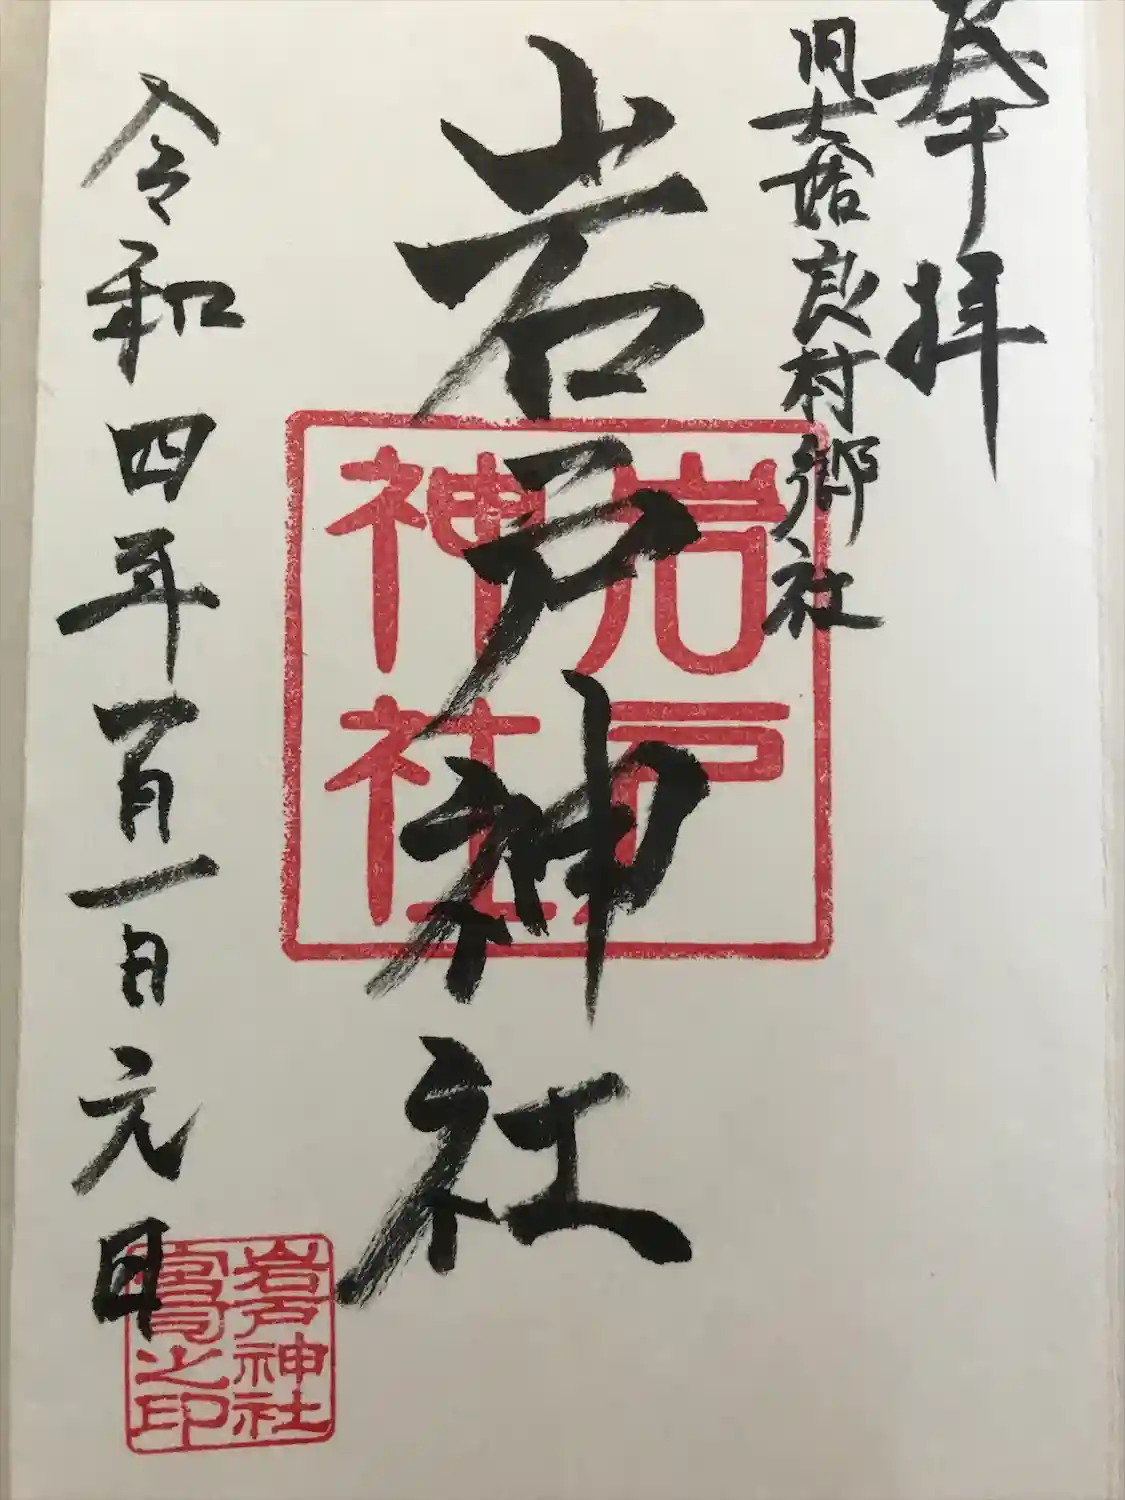 奉拝
旧大姶良村郷社
岩戸神社
令和四年一月一日元旦
岩戸
神社
岩戸神社
宮司之印